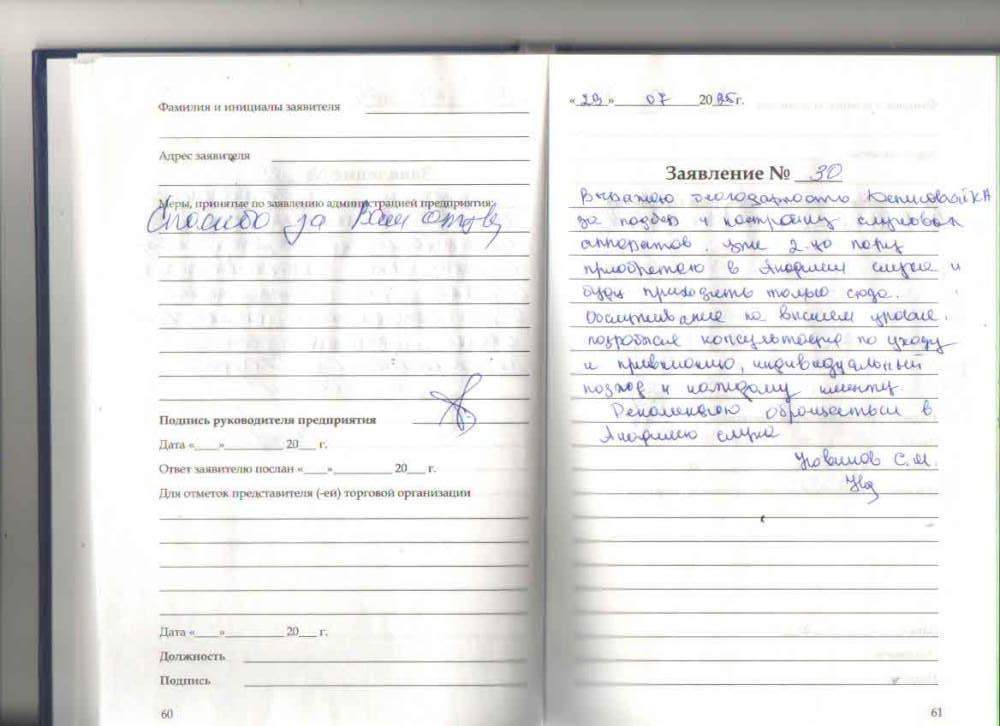 Фамилия и инициалы заявителя
Адрес заявителя
Меры, принятые по заявлению администрацией предприятия:
Спасибо за Ваш отзыв
Подпись руководителя предприятия
Дата «___»_________ 20___ г.
Ответ заявителю послан «___»_________ 20___ г.
Для отметок представителя (-ей) торговой организации
Дата «___»_________ 20___ г.
Должность
Подпись
60
«29» 07 2025г.
Заявление № 30
Выражаю благодарность
за подбор и настройку слуховых
аппаратов. уже 2-ую пару
приобретаю в Академии слуха и
буду приходить только сюда.
Обслуживание на высшем уровне.
подробная консультация по уходу
и привыканию, индивидуальный
подход к каждому клиенту.
Рекомендую обращаться в
Академию слуха
С.М.
61